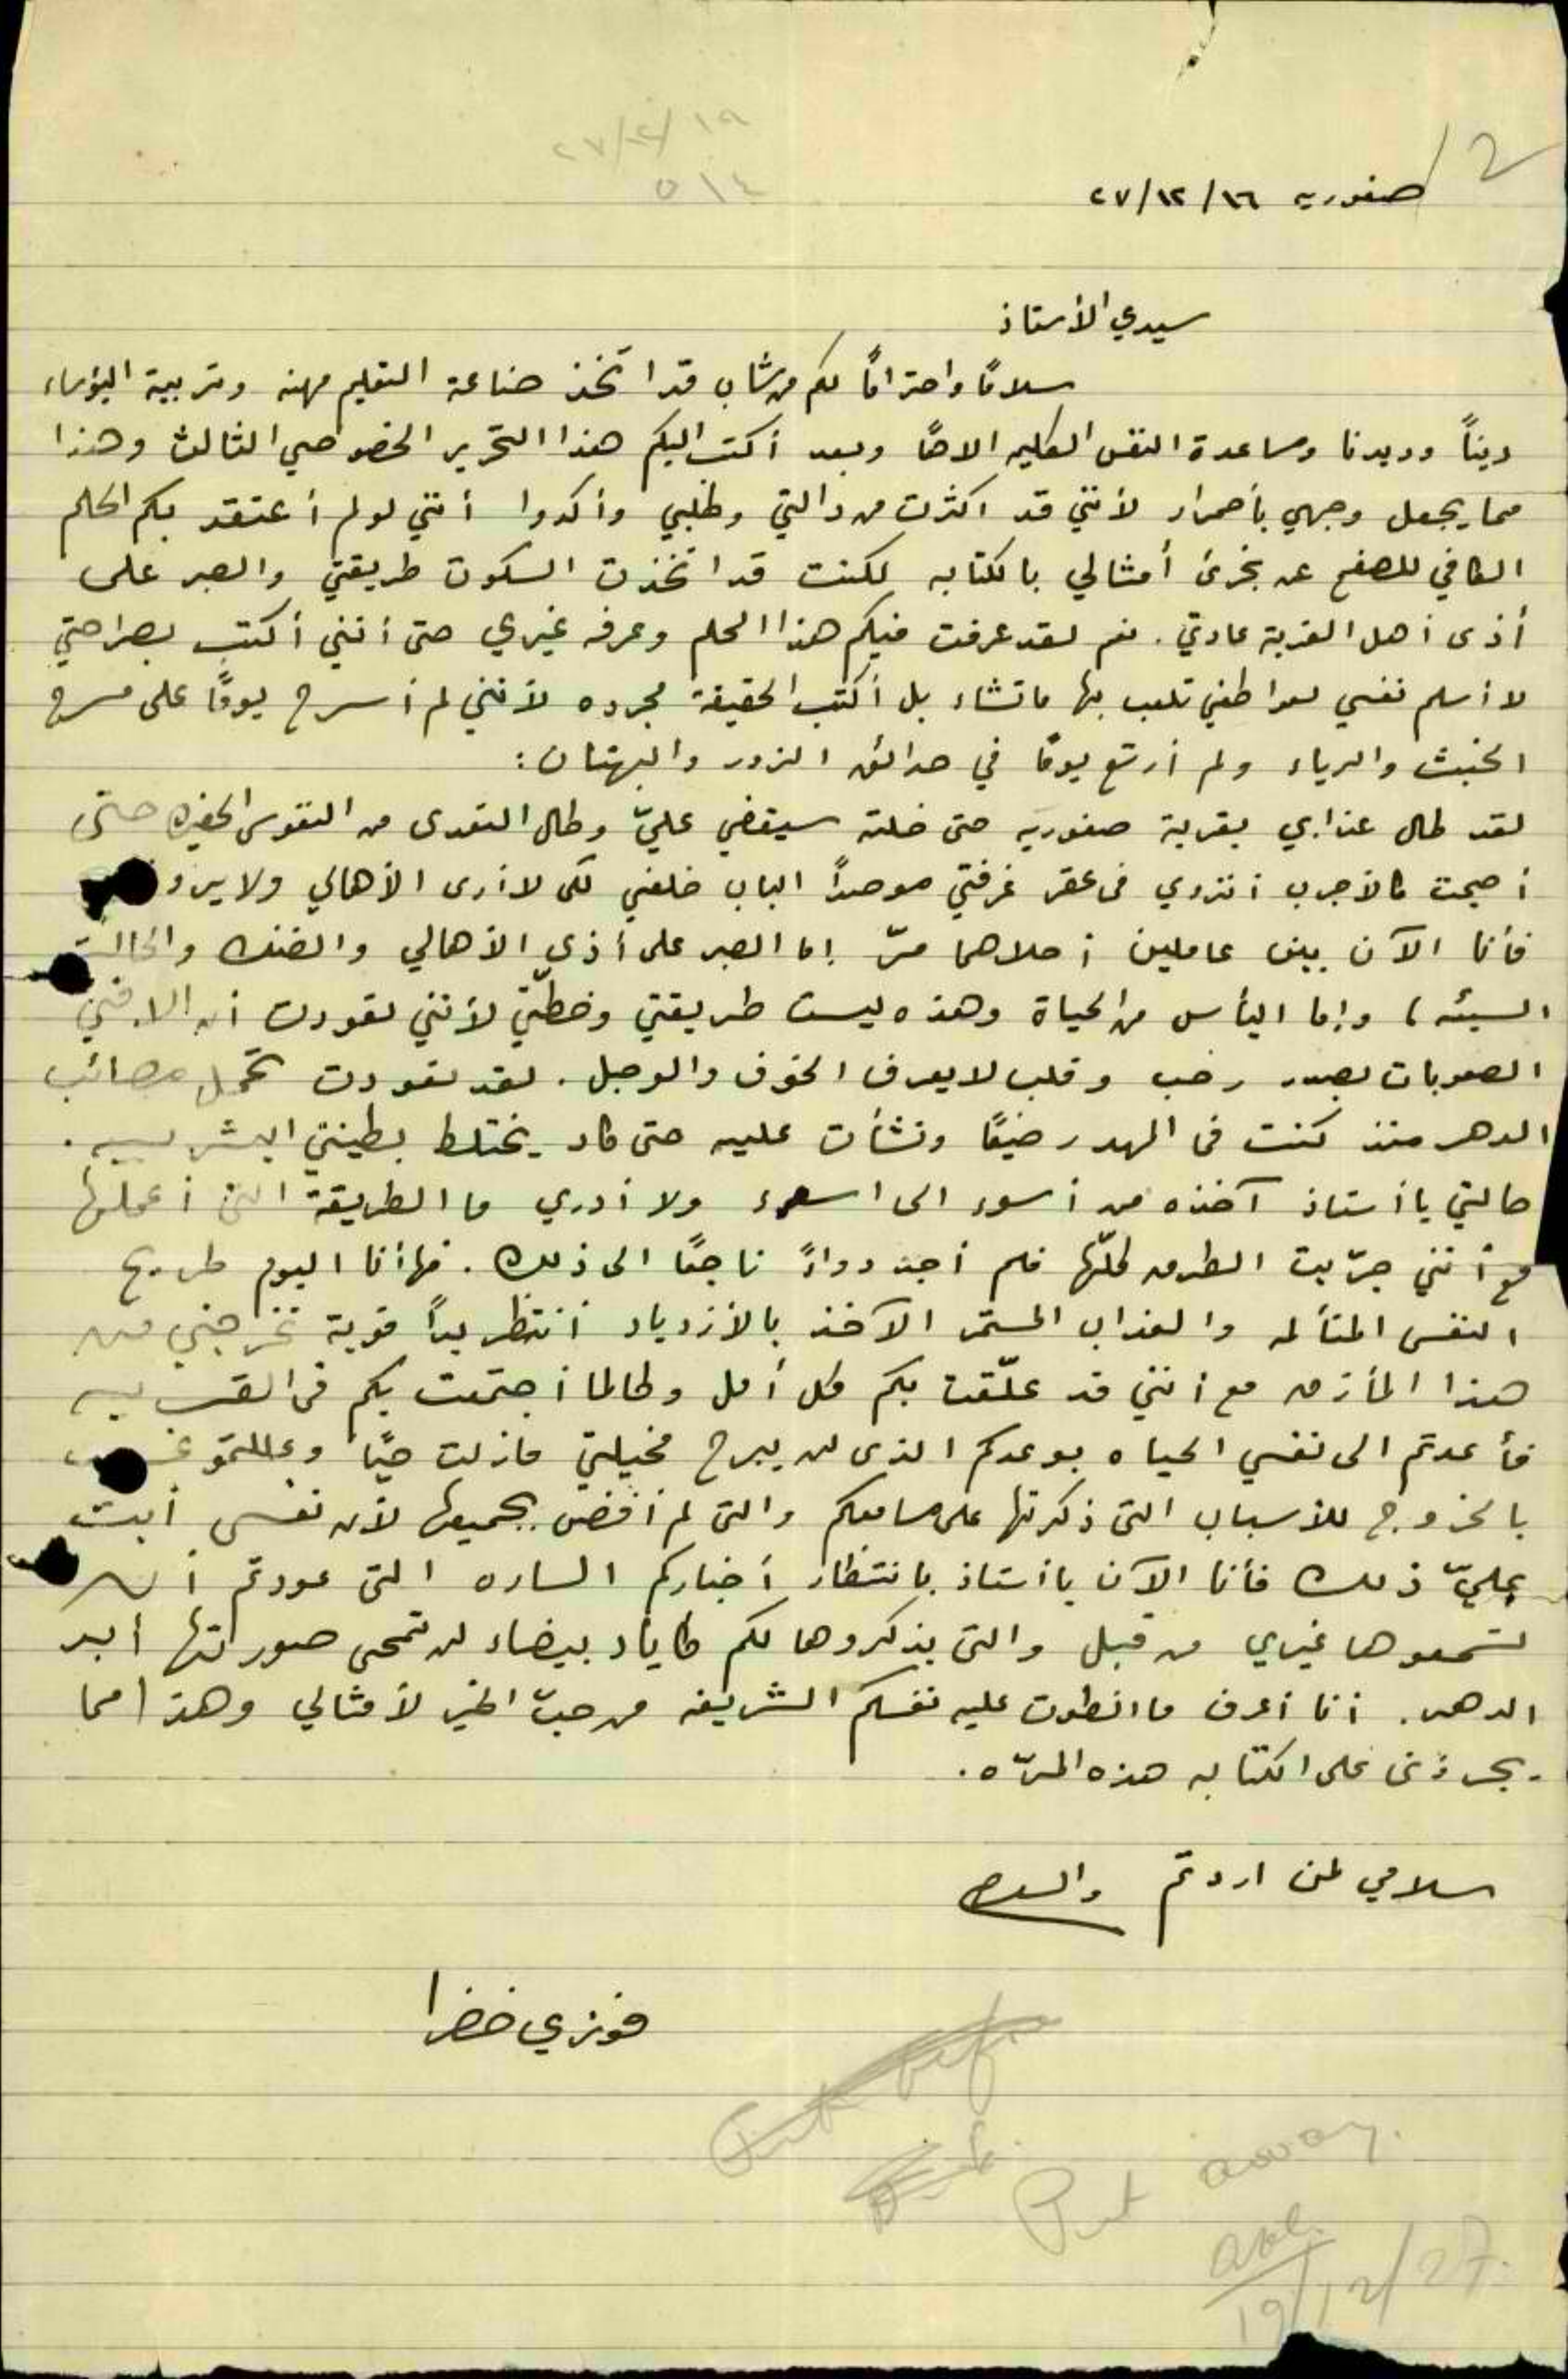 ٢٧/١٢/١٩
٥١٤
2
صفوريه ١٦/١٢/٢٧
سيدي الأستاذ
سلامًا واحترامًا لكم من شاب قد اتخذ صناعة التعليم مهنه وتربية البؤساء
دينًا وديدنا ومساعدة النفس الكليمه الاهًا وبعد أكتب اليكم هذا التحرير الخصوصي الثالث وهذا
مما يجعل وجهي بأحمرار لأنني قد اكثرت من دالتي وطلبي وأكدوا أنني لو لم أعتقد بكم الحلم
الكافي للصفح عن تجرئ أمثالي بالكتابه لكنت قد اتخذت السكوت طريقتي والصبر على
أذى أهل القرية عادتي. نعم لقد عرفت فيكم هذا الحلم وعرفه غيري حتى أنني أكتب بصراحتي
لا أسلم نفسي لعواطفي تلعب بها ما تشاء بل أكتب الحقيقة مجرده لأنني لم أسرح يومًا على مسرح
الخبث والرياء ولم أرتع يومًا في حدائق الزور والبهتان:
لقد طال عذابي بقرية صفوريه حتى خلته سيقضي عليّ وطال التعدى من النفوس الحقيره حتى
أصبحت كالأجرب أنزوي في عقر غرفتي موصدًا الباب خلفي لكى لا أرى الأهالي ولا يرو
فأنا الآن بين عاملين أحلاهما مرّ إما الصبر على أذى الأهالي والضنك والحالة
السيئه، وإما اليأس من الحياة وهذه ليست طريقتي وخطتي لأنني تعودت أن الاقي
الصعوبات بصدر رحب وقلب لا يعرف الخوف والوجل. لقد تعودت تحمل مصائب
الدهر منذ كنت في المهد رضيعًا ونشأت عليه حتى كاد يختلط بطينتي البشريه.
حالتي يا أستاذ آخذه من أسوء الى اسوء ولا أدري ما الطريقة التي أعملها
مع أنني جرّبت الطرق كلّها فلم أجد دواءً ناجعًا الى ذلك. فها أنا اليوم طريح
النفس المتألمه والعذاب المستمر الآخذ بالأزدياد أنتظر يدًا قوية تخرجني من
هذا المأزق مع أنني قد علّقت بكم كل أمل ولطالما أجتمعت بكم في القريه
فأعدتم الى نفسي الحياه بوعدكم الذى لن يبرح مخيلتي ما زلت حيًا وعللتمو
بالخروج للأسباب التي ذكرتها على مسامعكم والتي لم أفض بجميعها لأن نفسي أبت
عليّ ذلك فأنا الآن يا أستاذ بانتظار أخباركم الساره التي عودتم أن
تسمعوها غيري من قبل والتي يذكروها لكم كاياد بيضاء لن تمحى صورتها أبد
الدهر. أنا أعرف ما انطوت عليه نفسكم الشريفه من حبّ الخير لأمثالي وهذا مما
يجرئني على الكتابه هذه المرّه.
سلامي لمن اردتم والسلام
فوزي خضرا
Put away.
19/12/27.